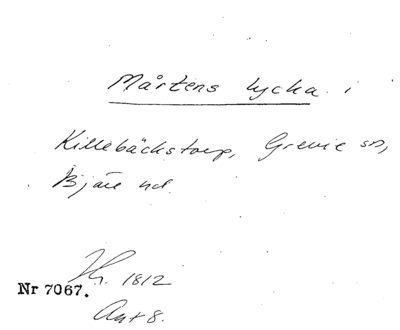 Mårtens lycka i
Killebäckstorp, Grevie sn,
Bjäre hd.
Hs. 1812
Nr 7067.
Akt 8.